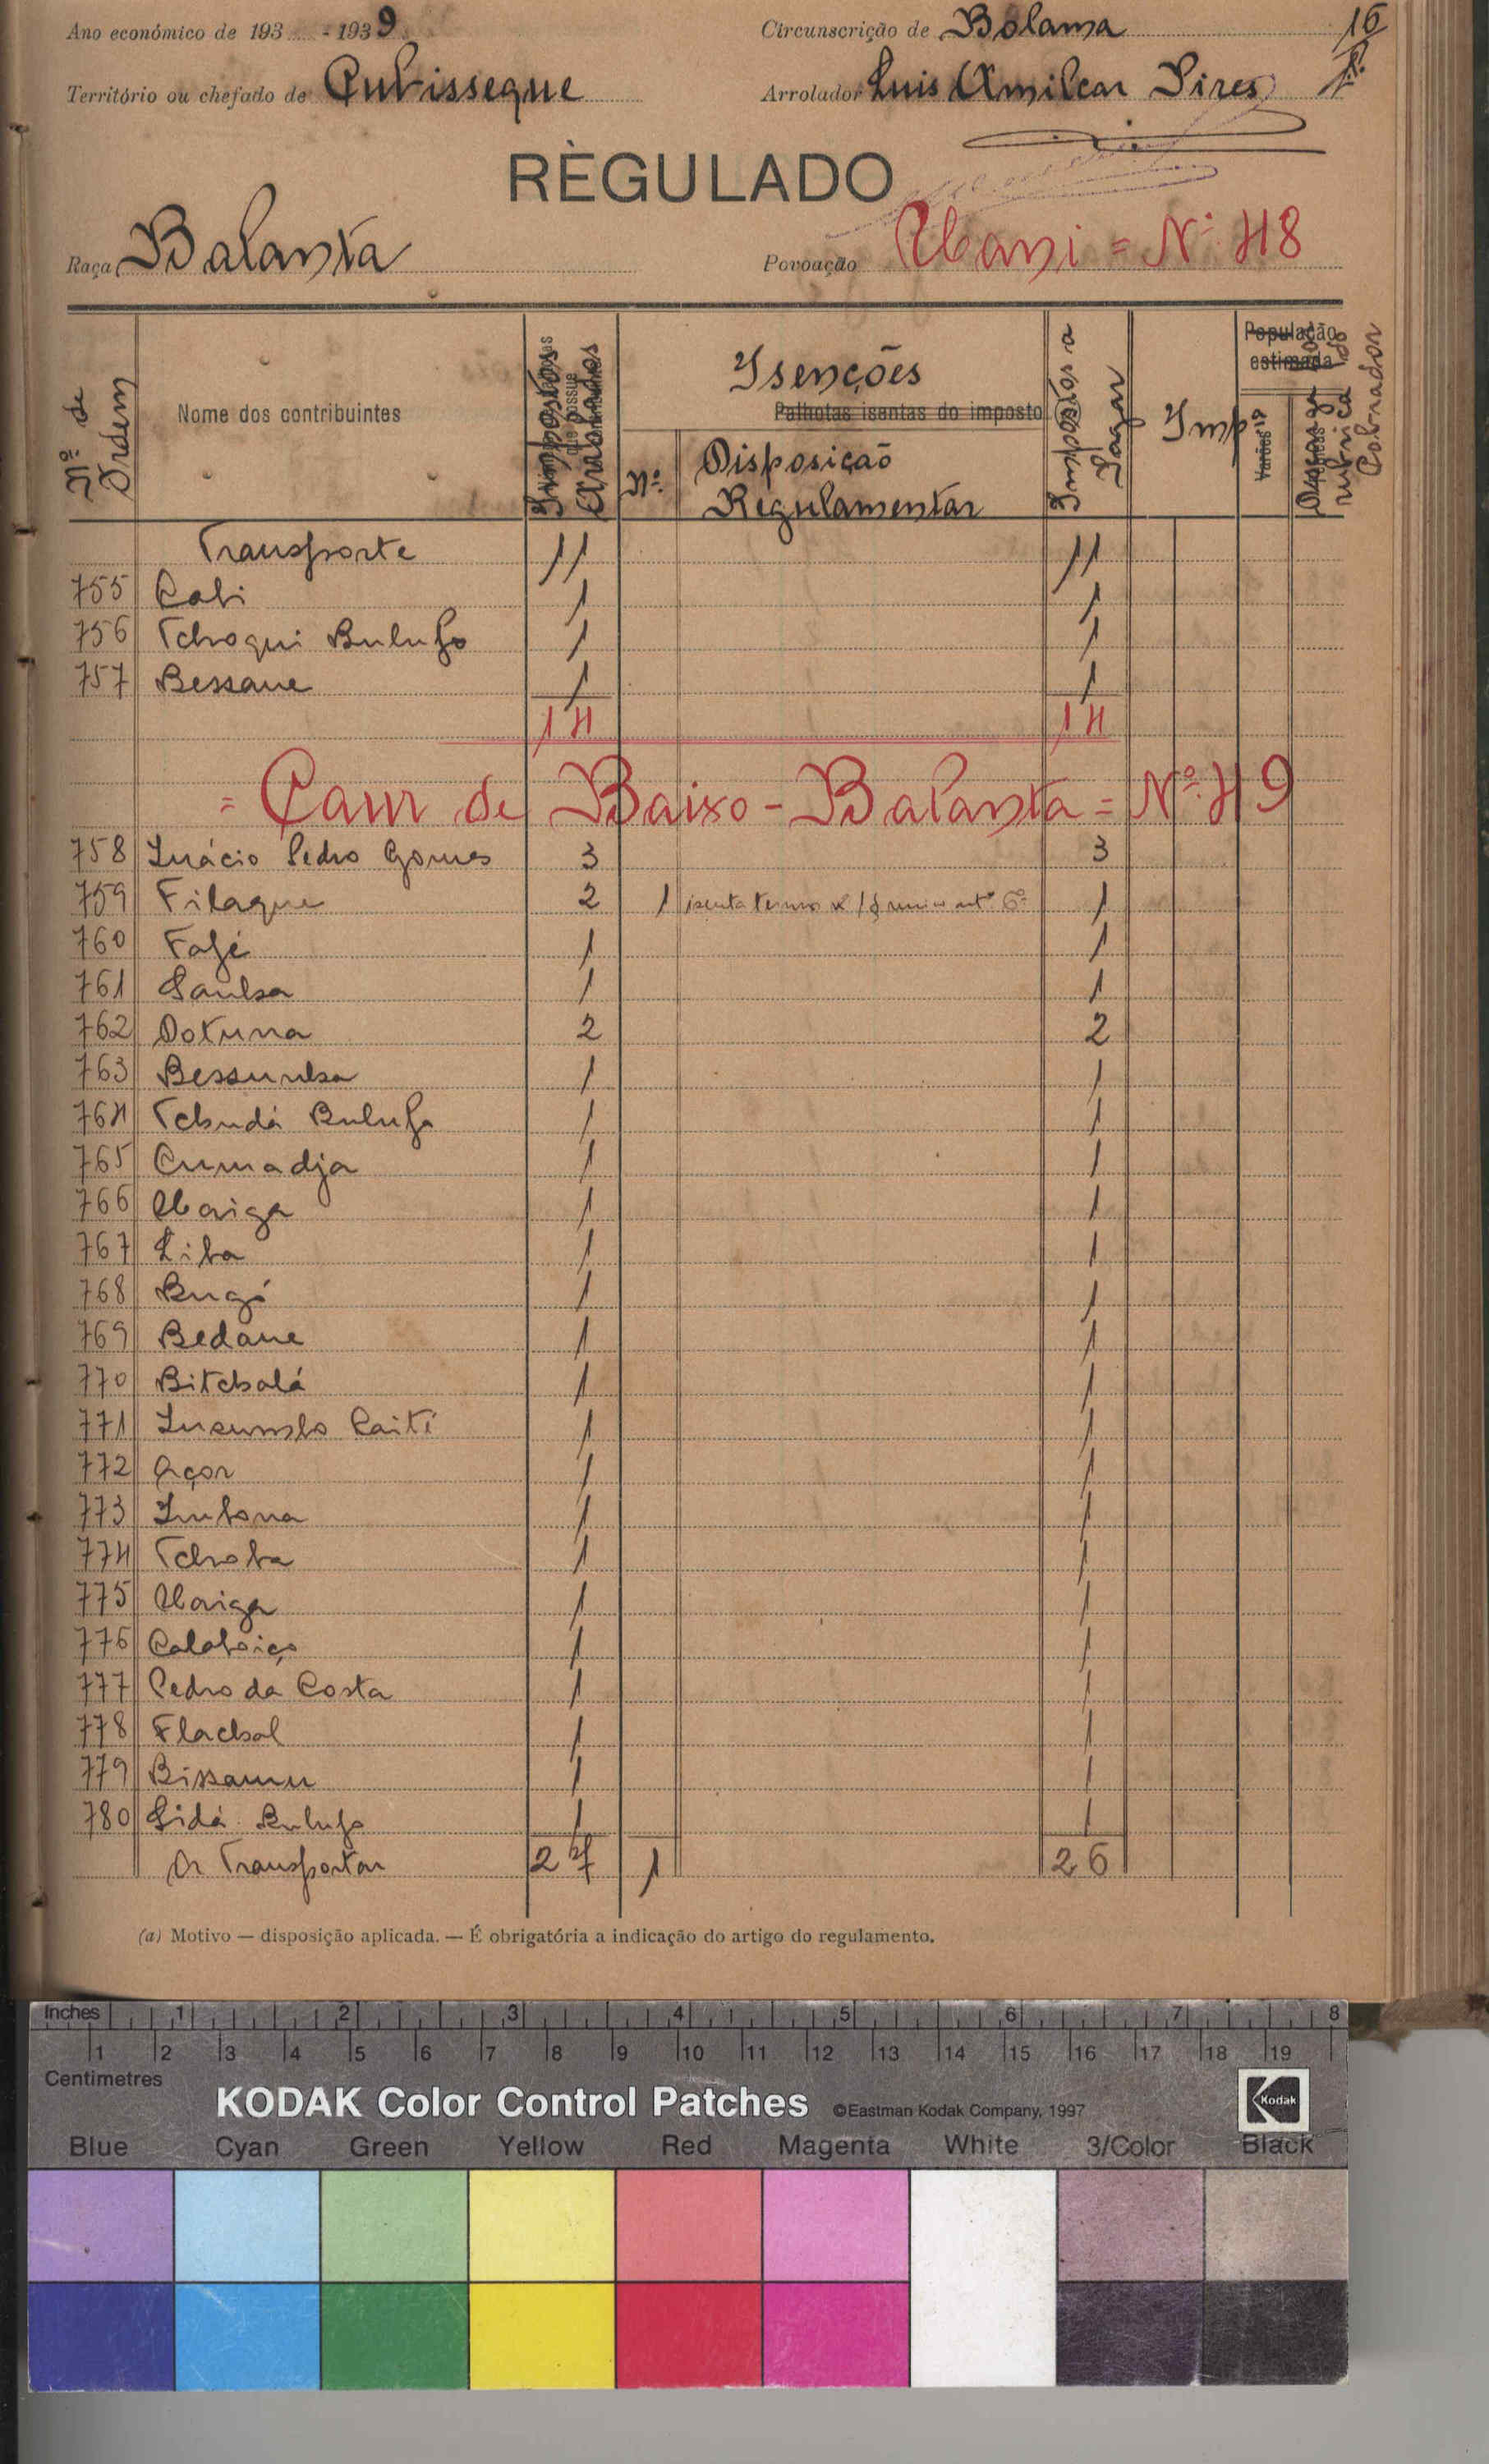 Ano económico de 193 - 1939
Circunscrição de Bolama
16
Território ou chefado de Cubisseque
Arrolador Luis Amilcar Pires
RÈGULADO
Raça Balanta
Povoação = Nº 48
Nº de Ordem
Nome dos contribuintes
Impostos Arrolados
Isenções
Palhotas isentas do imposto (a)
Nº
Disposição Regulamentar
Impostos a Pagar
Imp
População estimada
Varões
rubrica do Cobrador
Transporte 11 11
755 Cabi 1 1
756 Tchoqui Bulufo 1 1
757 Bessane 1 1
14 14
= Cam de Baixo - Balanta = Nº 49
758 Inácio Pedro Gomes 3 3
759 Filaque 2 1 1
760 Fafé 1 1
761 1 1
762 Dotuna 2 2
763 1 1
764 Tchudá Bulufo 1 1
765 Cumadja 1 1
766 1 1
767 1 1
768 Bugó 1 1
769 Bedane 1 1
770 Bitchalá 1 1
771 1 1
772 Açor 1 1
773 1 1
774 Tchoba 1 1
775 1 1
776 1 1
777 Pedro da Costa 1 1
778 Flachal 1 1
779 1 1
780 Sidá Bulufo 1 1
A Transportar 27 1 26
(a) Motivo — disposição aplicada. — É obrigatória a indicação do artigo do regulamento.
Inches 1 2 3 4 5 6 7 8
1 2 3 4 5 6 7 8 9 10 11 12 13 14 15 16 17 18 19
Centimetres
KODAK Color Control Patches ©Eastman Kodak Company, 1997 Kodak
Blue Cyan Green Yellow Red Magenta White 3/Color Black